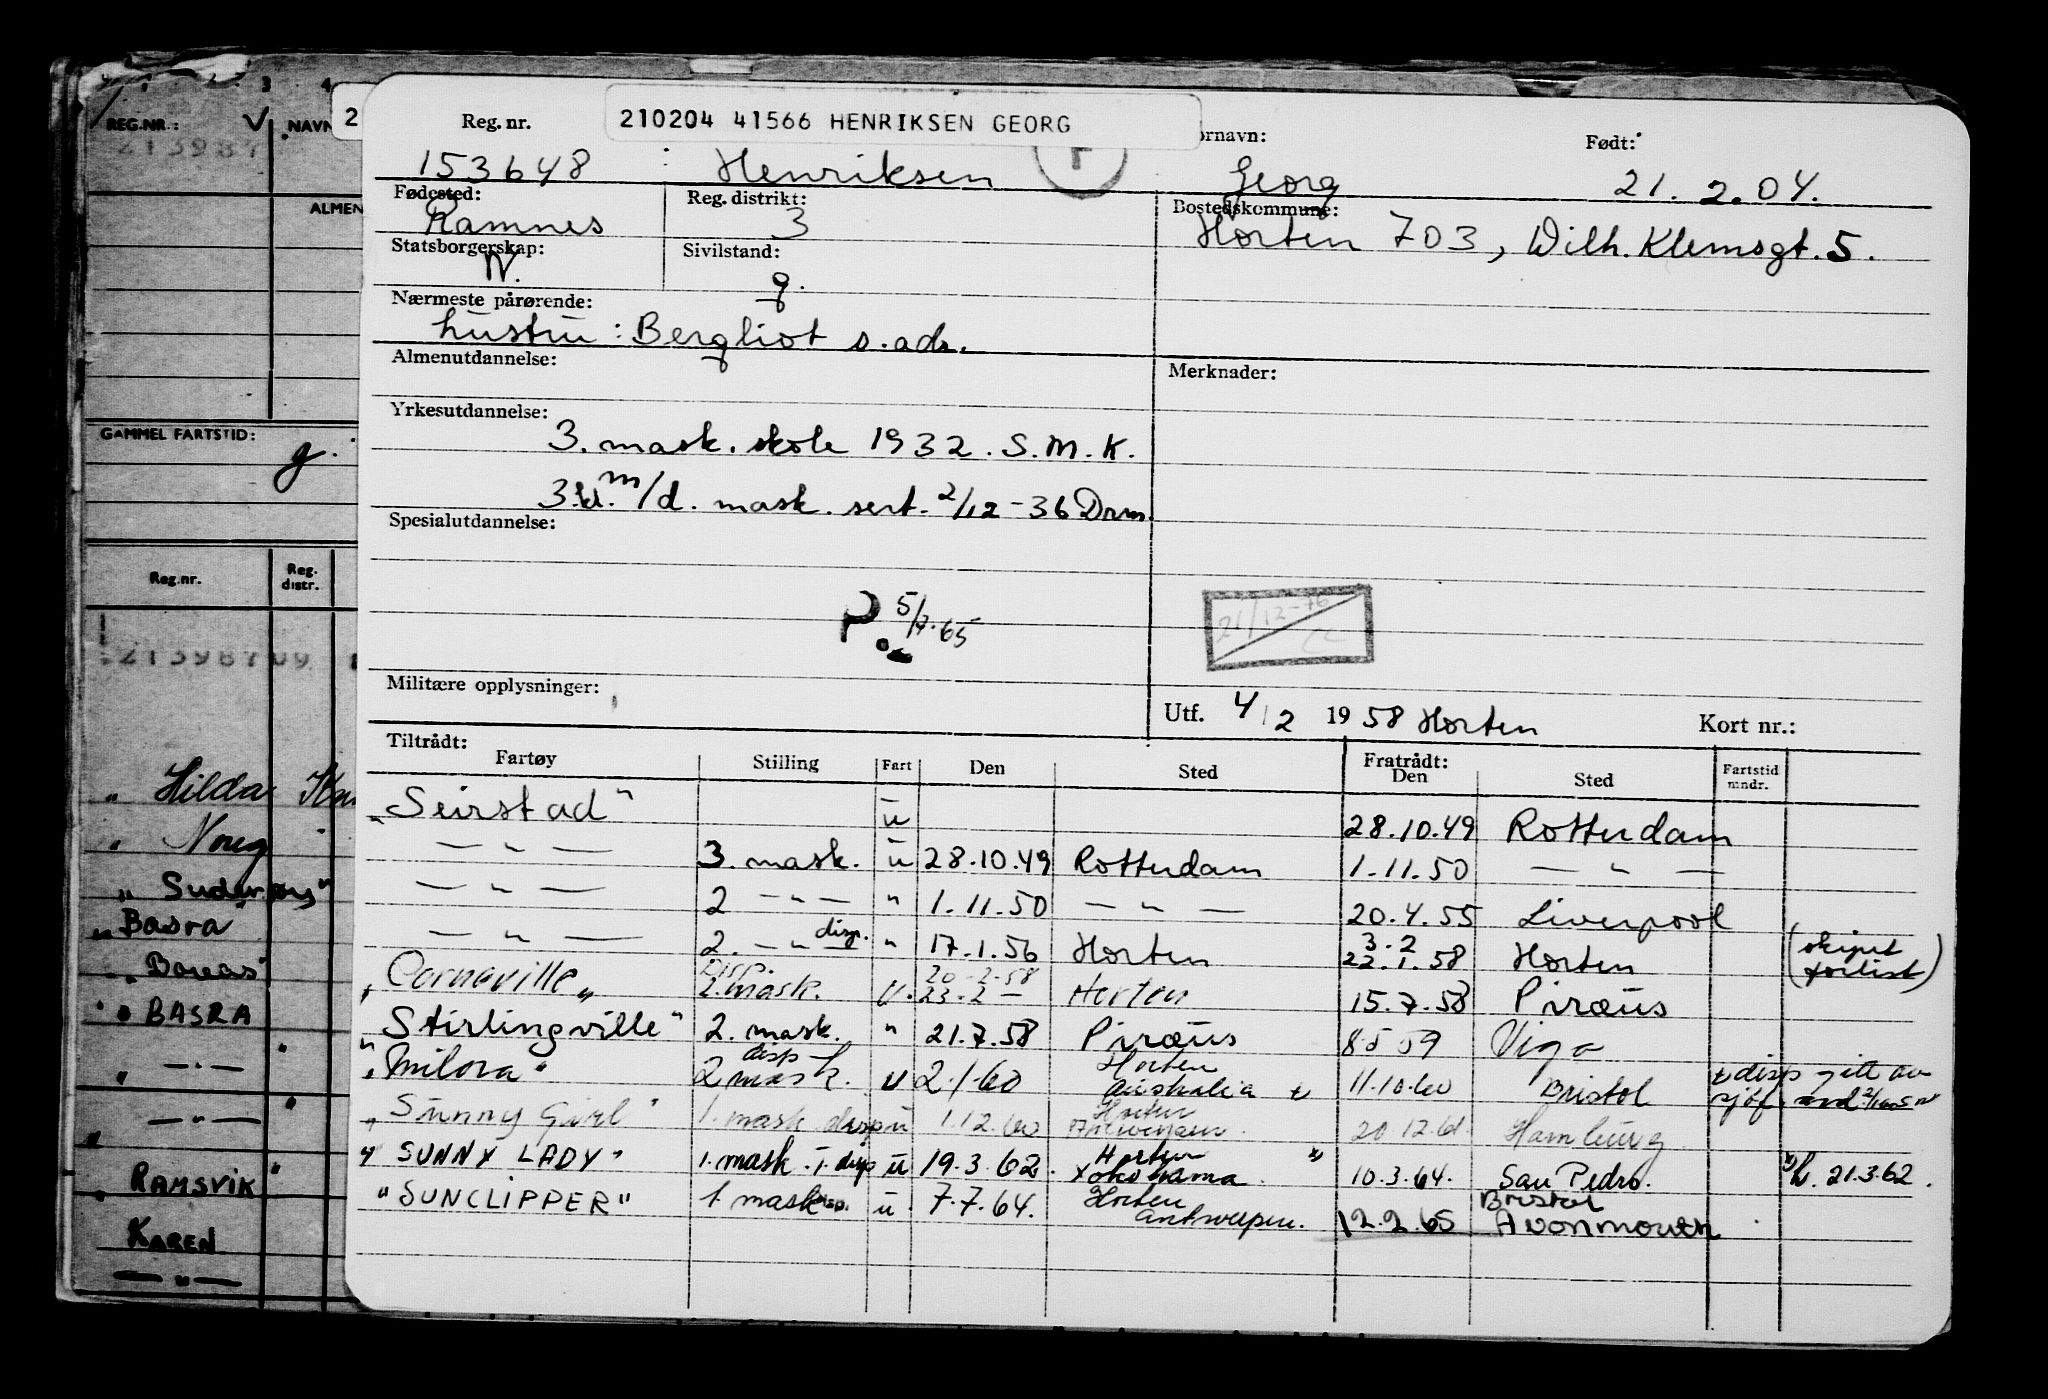 1 2 3 4
REG.NR.: V NAVN
213987
ALMEN
GAMMEL FARTSTID:
g.
Reg.nr. Reg. distr.
21398709
" Hilda
" Noreg
" Suderøy"
" Basra"
" Boreas"
" BASRA
" — " —
" — " —
RAMSVIK"
KAREN
— " —
2
210204 41566 HENRIKSEN GEORG
Reg. nr. ornavn: Født:
153648 Henriksen F Georg 21.2.04.
Fødested: Reg. distrikt: Bostedskommune:
Ramnes 3 Horten 703, Wilh. Klemsgt. 5.
Statsborgerskap: Sivilstand:
N. g.
Nærmeste pårørende:
hustru: Bergliot s. adr.
Almenutdannelse: Merknader:
Yrkesutdannelse:
3. mask. skole 1932. S.M.K.
3.kl. m/d. mask. sert. 2/12-36 Drm.
Spesialutdannelse:
P. 5/7.65
21/12-76
Militære opplysninger:
Utf. 4/2 1958 Horten Kort nr.:
Tiltrådt: Fratrådt:
Fartøy Stilling Fart Den Sted Den Sted Fartstid mndr.
"Seirstad" u 28.10.49 Rotterdam
— " — 3. mask. u 28.10.49 Rotterdam 1.11.50 — " —
— " — 2 — " — " 1.11.50 — " — 20.4.55 Liverpool
— " — 2. — " — disp. " 17.1.56 Horten 3.2 22.1.58 Horten (skipet forlist)
"Corneville" Disp. 2. mask. u. 20-2-58 23.2 — Horten 15.7.58 Piræus
"Stirlingville" 2. mask. " 21.7.58 Piræus 8.5 59 Vigo
"Milora" disp 2 mask. u 2.1.60 Horten Australia x) 11.10.60 Bristol x) disp gitt av sjøf.
"Sunny Girl" 1. mask disp u 1.12.60 Horten 20.12.61 Hamburg
"SUNNY LADY" 1. mask. T. disp u 19.3.62. Horten Yokohama x) 10.3.64. San Pedro. x) h. 21.3.62.
"SUNCLIPPER" 1 mask disp. u 7.7.64. Horten Antwerpen. 12.2.65 Bristol Avonmouth